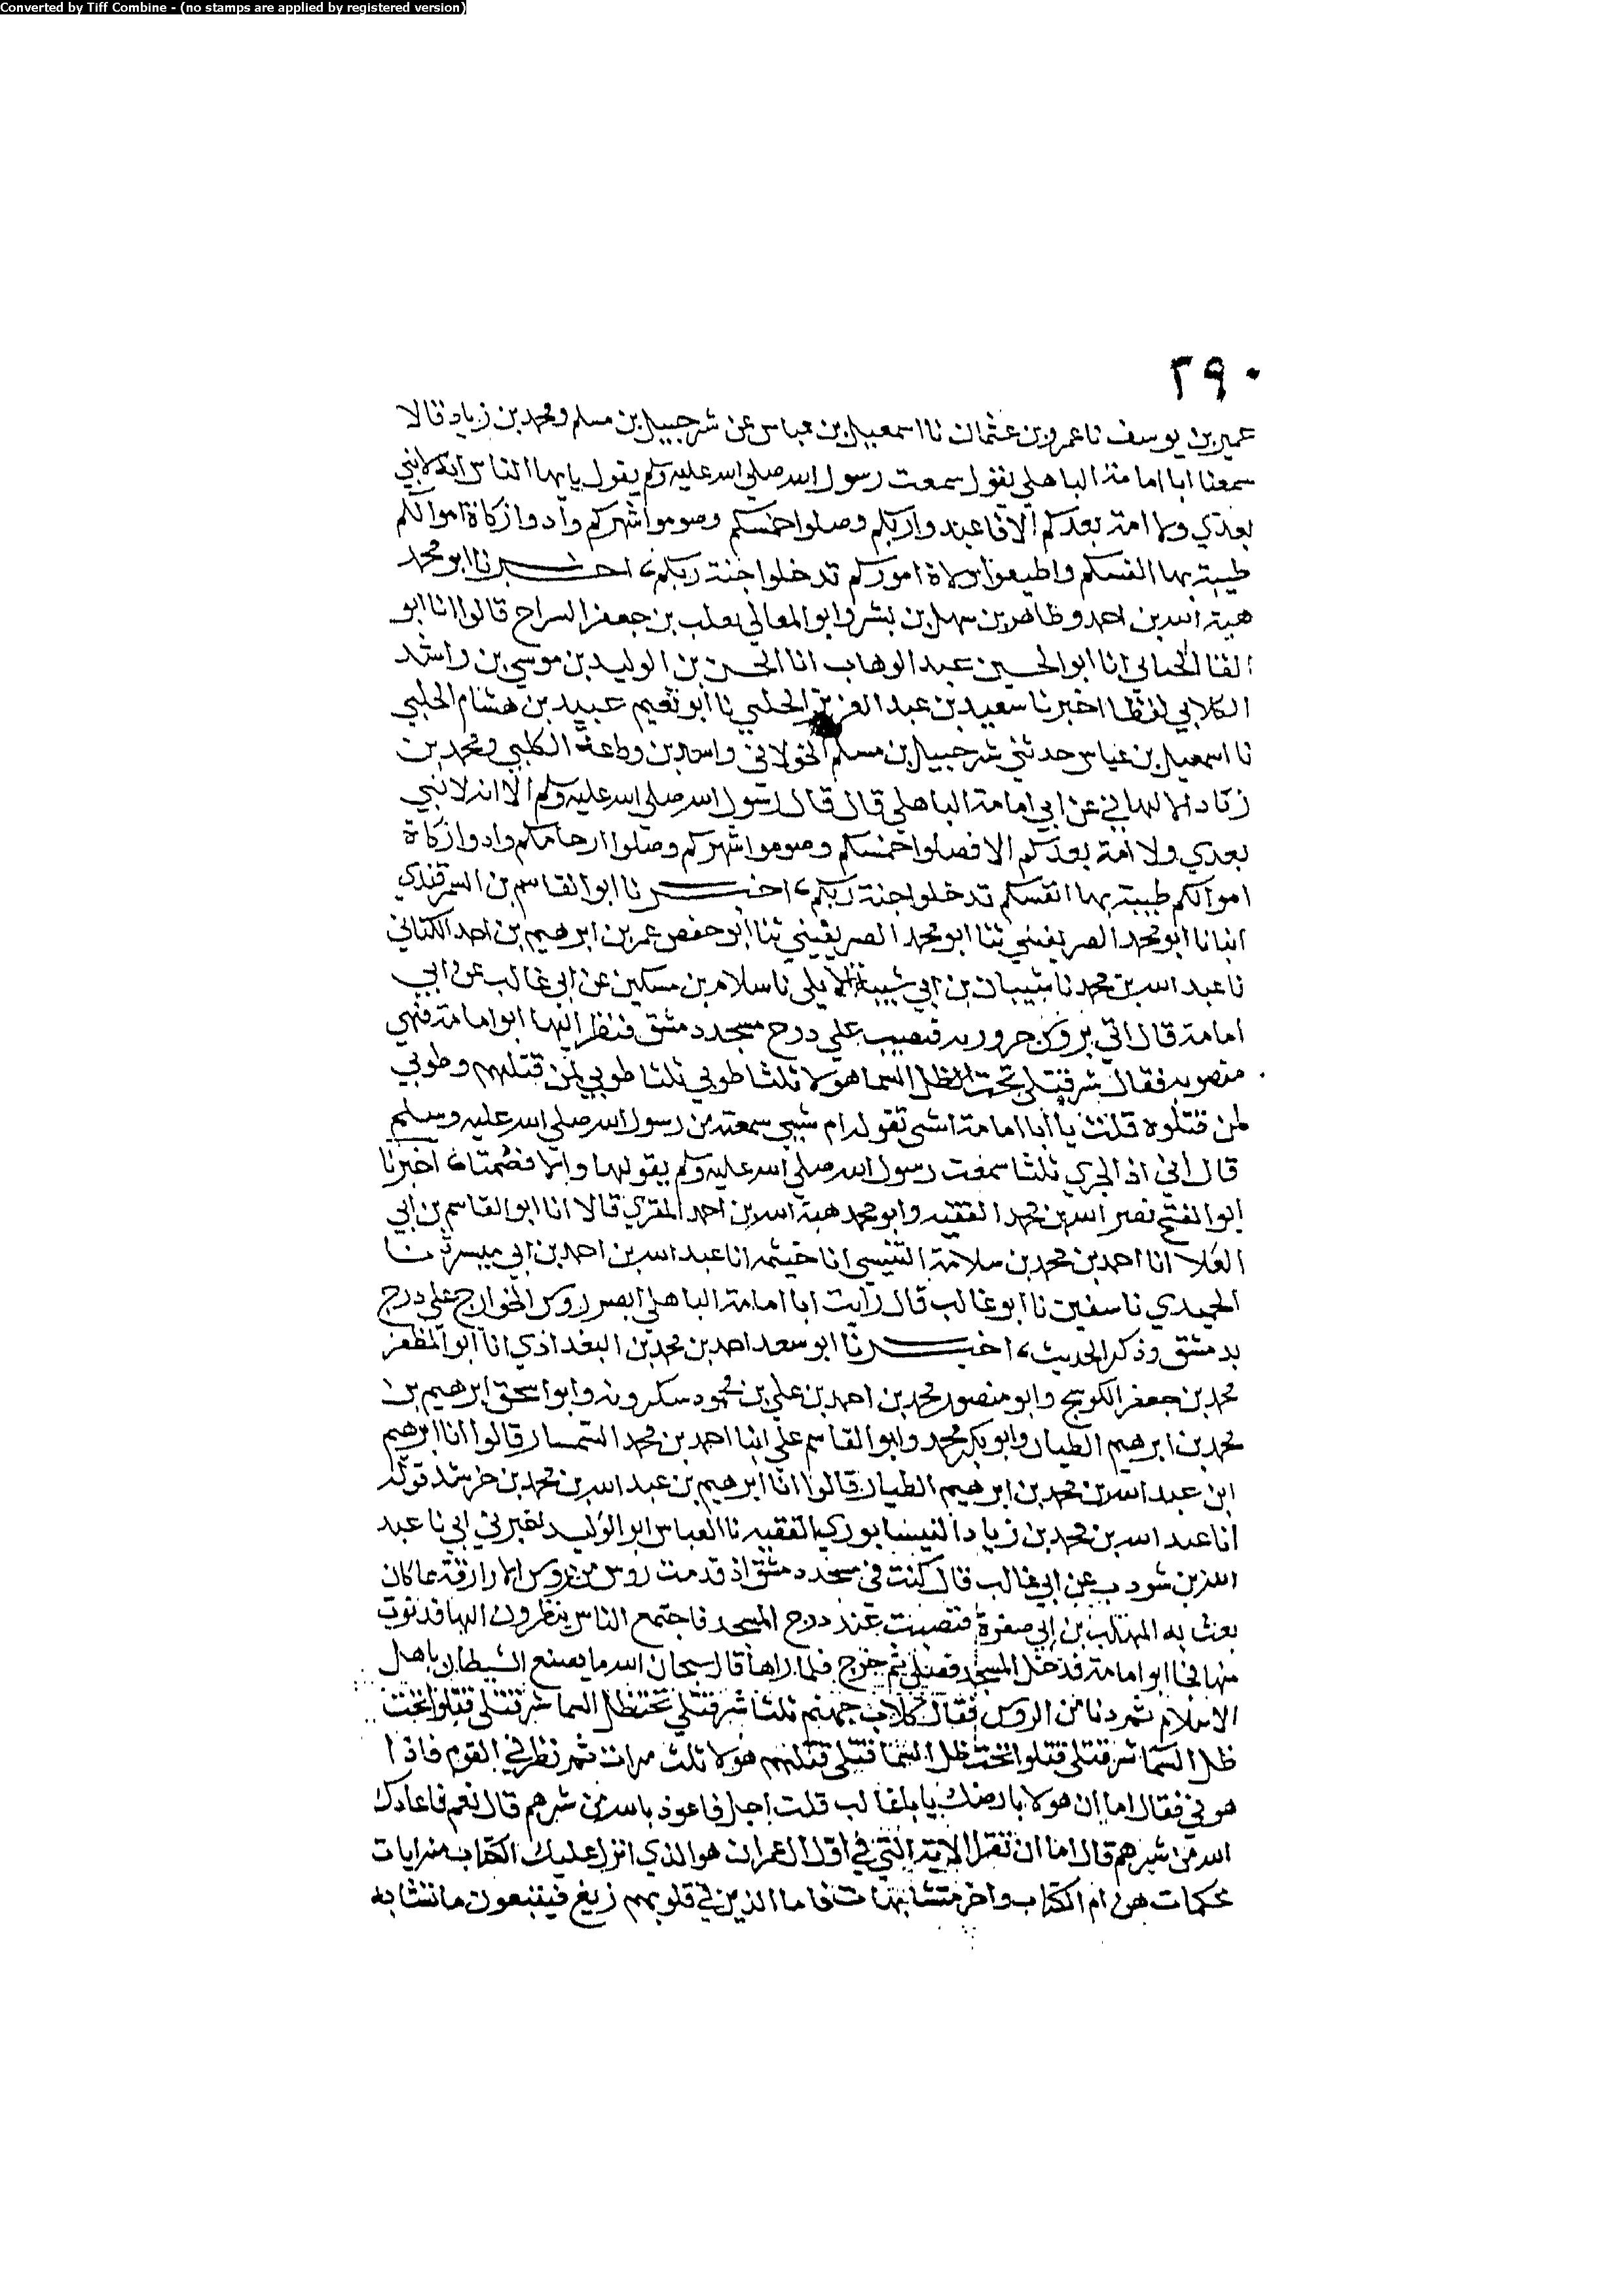 Converted by Tiff Combine - (no stamps are applied by registered version)
٢٩٠
عمير بن يوسف نا عمرو بن عثمان نا اسمعيل بن عياس عن شرحبيل بن مسلم ومحمد بن زياد قالا
سمعنا ابا امامة الباهلي يقول سمعت رسول الله صلي الله عليه وسلم يقول يايها الناس انه لا نبي
بعدي ولا امة بعدكم الا فاعبدوا ربكم وصلوا خمسكم وصوموا شهركم وادوا زكاة اموالكم
طيبة بها انفسكم واطيعوا ولاة اموركم تدخلوا جنة ربكم، اخبرنا ابو محمد
هبة الله بن احمد وطاهر بن سهل بن بشر وابو المعالي ثعلب بن جعفر السراج قالوا انا ابو
الحنائي انا ابو الحسين عبد الوهاب انا الحسن بن الوليد بن موسي بن راشد
الكلابي لفظا اخبرنا سعيد بن عبد العزيز الحلبي نا ابو نعيم عبيد بن هشام الحلبي
نا اسمعيل بن عياس حدثني شرحبيل بن مسلم الخولاني واسد بن وداعة الكلبي ومحمد بن
زياد الالهاني عن ابي امامة الباهلي قال قال رسول الله صلي الله عليه وسلم الا انه لا نبي
بعدي ولا امة بعدكم الا فصلوا خمسكم وصوموا شهركم وصلوا ارحامكم وادوا زكاة
اموالكم طيبة بها انفسكم تدخلوا جنة ربكم، اخبرنا ابو القاسم بن السمرقندي
انبانا ابو محمد الصريفيني ثنا ابو محمد الصريفيني ثنا ابو حفص عمر بن ابرهيم بن احمد الكتاني
نا عبد الله بن محمد نا شيبان بن ابي شيبة الايلي نا سلام بن مسكين عن ابي غالب عن ابي
امامة قال اتي بروس حرورية فنصبت علي درج مسجد دمشق فنظر اليها ابو امامة فهي
منصوبه فقال شر قتلي تحت ظل السما هولا ثلثا طوبي ثلثا طوبي لمن قتلهم وطوبي
لمن قتلوه قلت يا ابا امامة اشي تقوله ام شيي سمعته من رسول الله صلي الله عليه وسلم
قال اني اذ الجري ثلثا سمعت رسول الله صلي الله عليه وسلم يقولها والا فصمتا، اخبرنا
ابو الفتح نصر الله بن محمد الفقيه وابو محمد هبة الله بن احمد المقري قالا انا ابو القاسم بن ابي
العلا انا احمد بن محمد بن سلامة التنيسي انا خيثمه انا عبد الله بن احمد بن ابي ميسرة نا
الحميدي نا سفين نا ابو غالب قال رايت ابا امامة الباهلي ابصر روس الخوارج علي درج
بدمشق وذكر الحديث، اخبرنا ابو سعد احمد بن محمد بن البغدادي انا ابو المظفر
محمد بن جعفر الكوسج وابو منصور محمد بن احمد بن علي بن محمود سكرويه وابو اسحق ابرهيم بن
محمد بن ابرهيم الطيان وابو بكر محمد وابو القاسم علي ابنا احمد بن محمد السمسار قالوا انا ابرهيم
ابن عبد الله بن محمد بن ابرهيم الطيان قالوا انا ابرهيم بن عبد الله بن محمد بن خرشيد قوله
انا عبد الله بن محمد بن زياد النيسابوري الفقيه نا العباس ابو الوليد اخبرني ابي نا عبد
الله بن شودب عن ابي غالب قال كنت في مسجد دمشق اذ قدمت روس من روس الازارقة مما كان
بعث به المهلب بن ابي صفرة فنصبت عند درج المسجد فاجتمع الناس ينظرون اليها فدنوت
منها فجا ابو امامة فدخل المسجد فصلي ثم خرج فلما راها قال سبحان الله ما يصنع الشيطان باهل
الاسلام ثم دنا من الروس فقال كلاب جهنم ثلثا شر قتلي تحت ظل السما شر قتلي قتلوا تحت
ظل السما شر قتلي قتلوا تحت ظل السما قتلي قتلهم هولا ثلث مرات ثم نظر في القوم فاذا
هو بي فقال اما ان هولا بارضك يا باغالب قلت اجل فاعوذ بالله من شرهم قال نعم فاعاذك
الله من شرهم قال اما ان تقرا الاية التي في اول ال عمران هو الذي انزل عليك الكتاب منه ايات
محكمات هن ام الكتاب واخر متشابهات فاما الذين في قلوبهم زيغ فيتبعون ما تشابه